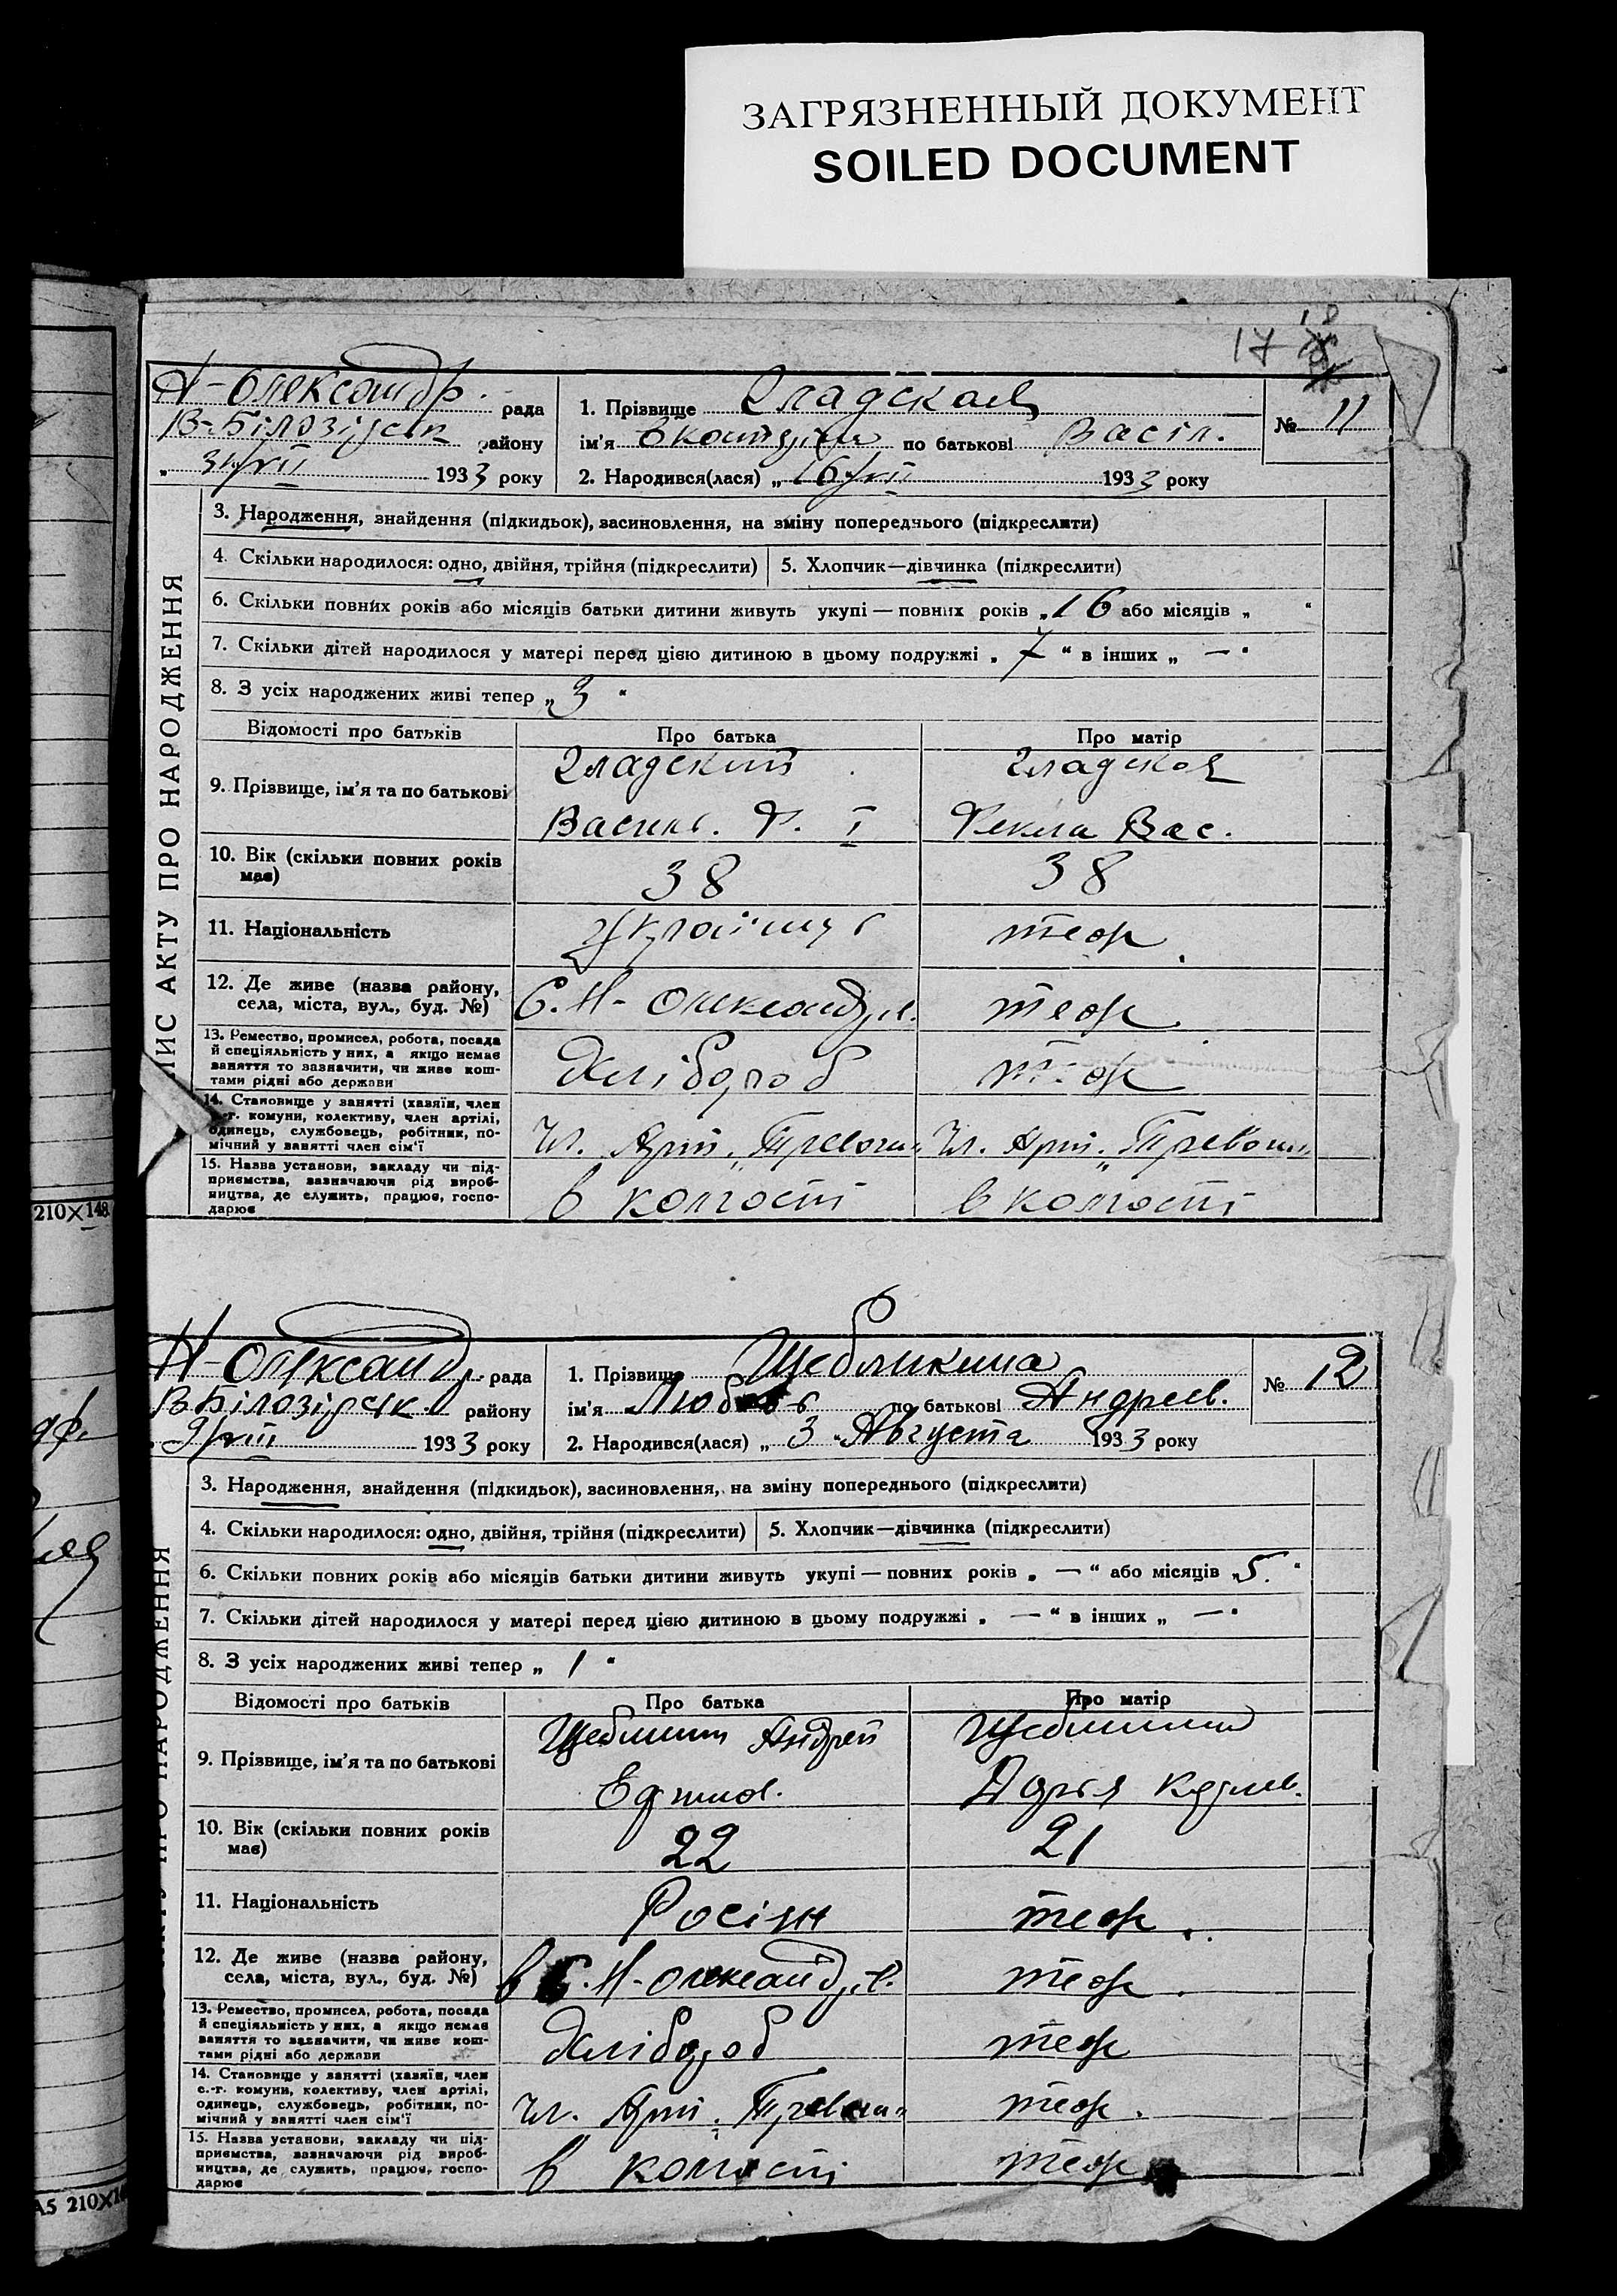 ЗАГРЯЗНЕННЫЙ ДОКУМЕНТ
SOILED DOCUMENT
17
Н-Олександр. рада
В-Білозірськ району
31/VII 1933 року
1. Прізвище Гладская
ім'я по батькові Васіл.
2. Народився(лася) „ 16/VII 1933 року
№ 11
3. Народження, знайдення (підкидьок), засиновлення, на зміну попереднього (підкреслити)
4. Скільки народилося: одно, двійня, трійня (підкреслити) 5. Хлопчик—дівчинка (підкреслити)
6. Скільки повних років або місяців батьки дитини живуть укупі — повних років „16 або місяців „ “
7. Скільки дітей народилося у матері перед цією дитиною в цьому подружжі „ 7 “ в інших „ — “
8. З усіх народжених живі тепер „ 3 “
Відомості про батьків Про батька Про матір
9. Прізвище, ім'я та по батькові
Гладский Гладская
Васил. Ф. І Фекла Вас.
10. Вік (скільки повних років має) 38 38
11. Національність теж
12. Де живе (назва району, села, міста, вул., буд. №) С. Н-Олександр. теж
13. Ремество, промисел, робота, посада
й спеціяльність у них, а якщо немає
заняття то зазначити, чи живе кош-
тами рідні або держави
Хлібороб теж
14. Становище у занятті (хазяїн, член
с.-г. комуни, колективу, член артілі,
одинець, службовець, робітник, по-
мічний у занятті член сім'ї
Чл. Арт. Чл. Арт.
15. Назва установи, закладу чи під-
приємства, зазначаючи рід вироб-
ництва, де служить, працює, госпо-
дарює
в колгоспі в колгоспі
ПИС АКТУ ПРО НАРОДЖЕННЯ
210×148
Н-Олександр. рада
В-Білозірськ. району
9/VIII 1933 року
1. Прізвище Щебликина
ім'я Любовь по батькові Андреев.
2. Народився(лася) „ 3 „ Августа 1933 року
№ 12
3. Народження, знайдення (підкидьок), засиновлення, на зміну попереднього (підкреслити)
4. Скільки народилося: одно, двійня, трійня (підкреслити) 5. Хлопчик—дівчинка (підкреслити)
6. Скільки повних років або місяців батьки дитини живуть укупі — повних років „ — “ або місяців „5. “
7. Скільки дітей народилося у матері перед цією дитиною в цьому подружжі „ — “ в інших „ — “
8. З усіх народжених живі тепер „ 1 “
Відомості про батьків Про батька Про матір
9. Прізвище, ім'я та по батькові
Щебликин Андрей
Дарья
10. Вік (скільки повних років має) 22 21
11. Національність Росіян теж.
12. Де живе (назва району, села, міста, вул., буд. №) в С. Н-Олександр. теж.
13. Ремество, промисел, робота, посада
й спеціяльність у них, а якщо немає
заняття то зазначити, чи живе кош-
тами рідні або держави
Хлібороб теж
14. Становище у занятті (хазяїн, член
с.-г. комуни, колективу, член артілі,
одинець, службовець, робітник, по-
мічний у занятті член сім'ї
Чл. Арт. теж.
15. Назва установи, закладу чи під-
приємства, зазначаючи рід вироб-
ництва, де служить, працює, госпо-
дарює
в колгоспі теж
ПРО НАРОДЖЕННЯ
А5 210×